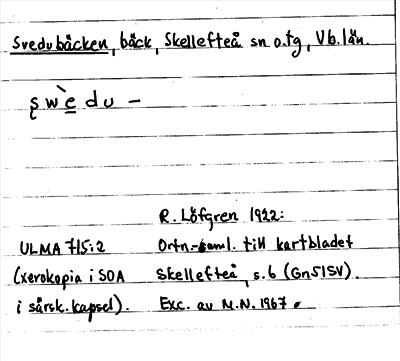 Svedubäcken, bäck, Skellefteå sn o.tg, Vb.län.
s̨wè̲du-
R. Löfgren 1922:
ULMA 715:2 Ortn.-saml. till kartbladet
(xerokopia i SOA Skellefteå, s.6 (Gn51SV).
i särsk.kapsel). Exc. av M.N. 1967.